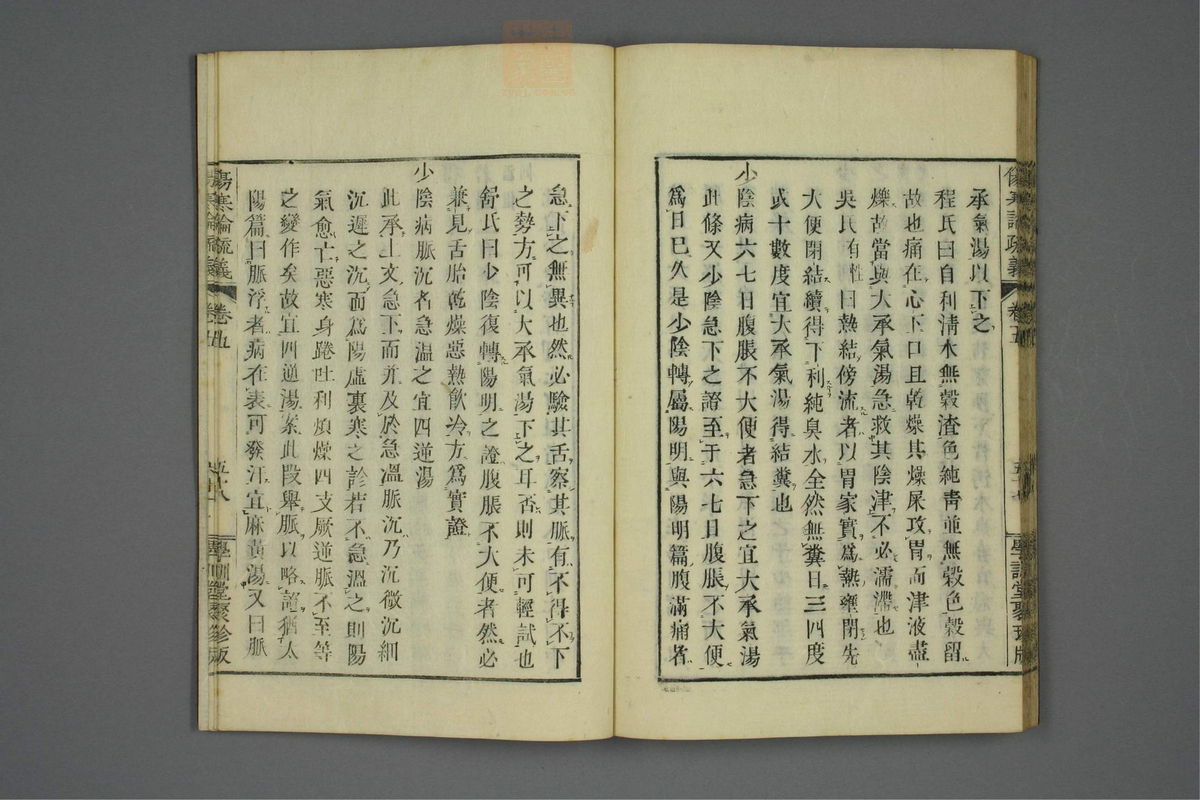 傷寒論疏義 卷五 學訓堂聚珍版
承氣湯以下之
程氏曰自利淸水無穀渣色純靑並無穀色穀留
故也痛在心下口且乾燥其燥屎攻胃而津液盡
燥故當與大承氣湯急救其陰津不必濡滯也
吳氏有性曰熱結傍流者以胃家實爲熱壅閉先
大便閉結續得下利純臭水全然無糞日三四度
或十數度宜大承氣湯得結糞也
少陰病六七日腹脹不大便者急下之宜大承氣湯
此條又少陰急下之證至于六七日腹脹不大便
爲日已久是少陰轉屬陽明與陽明篇腹滿痛者
急下之無異也然必驗其舌察其脈有不得不下
之勢方可以大承氣湯下之耳否則未可輕試也
舒氏曰少陰復轉陽明之證腹脹不大便者然必
兼見舌胎乾燥惡熱飮冷方爲實證
少陰病脈沉者急温之宜四逆湯
此承上文急下而并及於急溫脈沉乃沉微沉細
沉遲之沉而爲陽虛裏寒之診若不急溫之則陽
氣愈亡惡寒身踡吐利煩燥四支厥逆脈不至等
之變作矣故宜四逆湯案此段舉脈以略證猶太
陽篇曰脈浮者病在表可發汗宜麻黃湯又曰脈
傷寒論疏義 卷五 五十八 學訓堂聚珍版